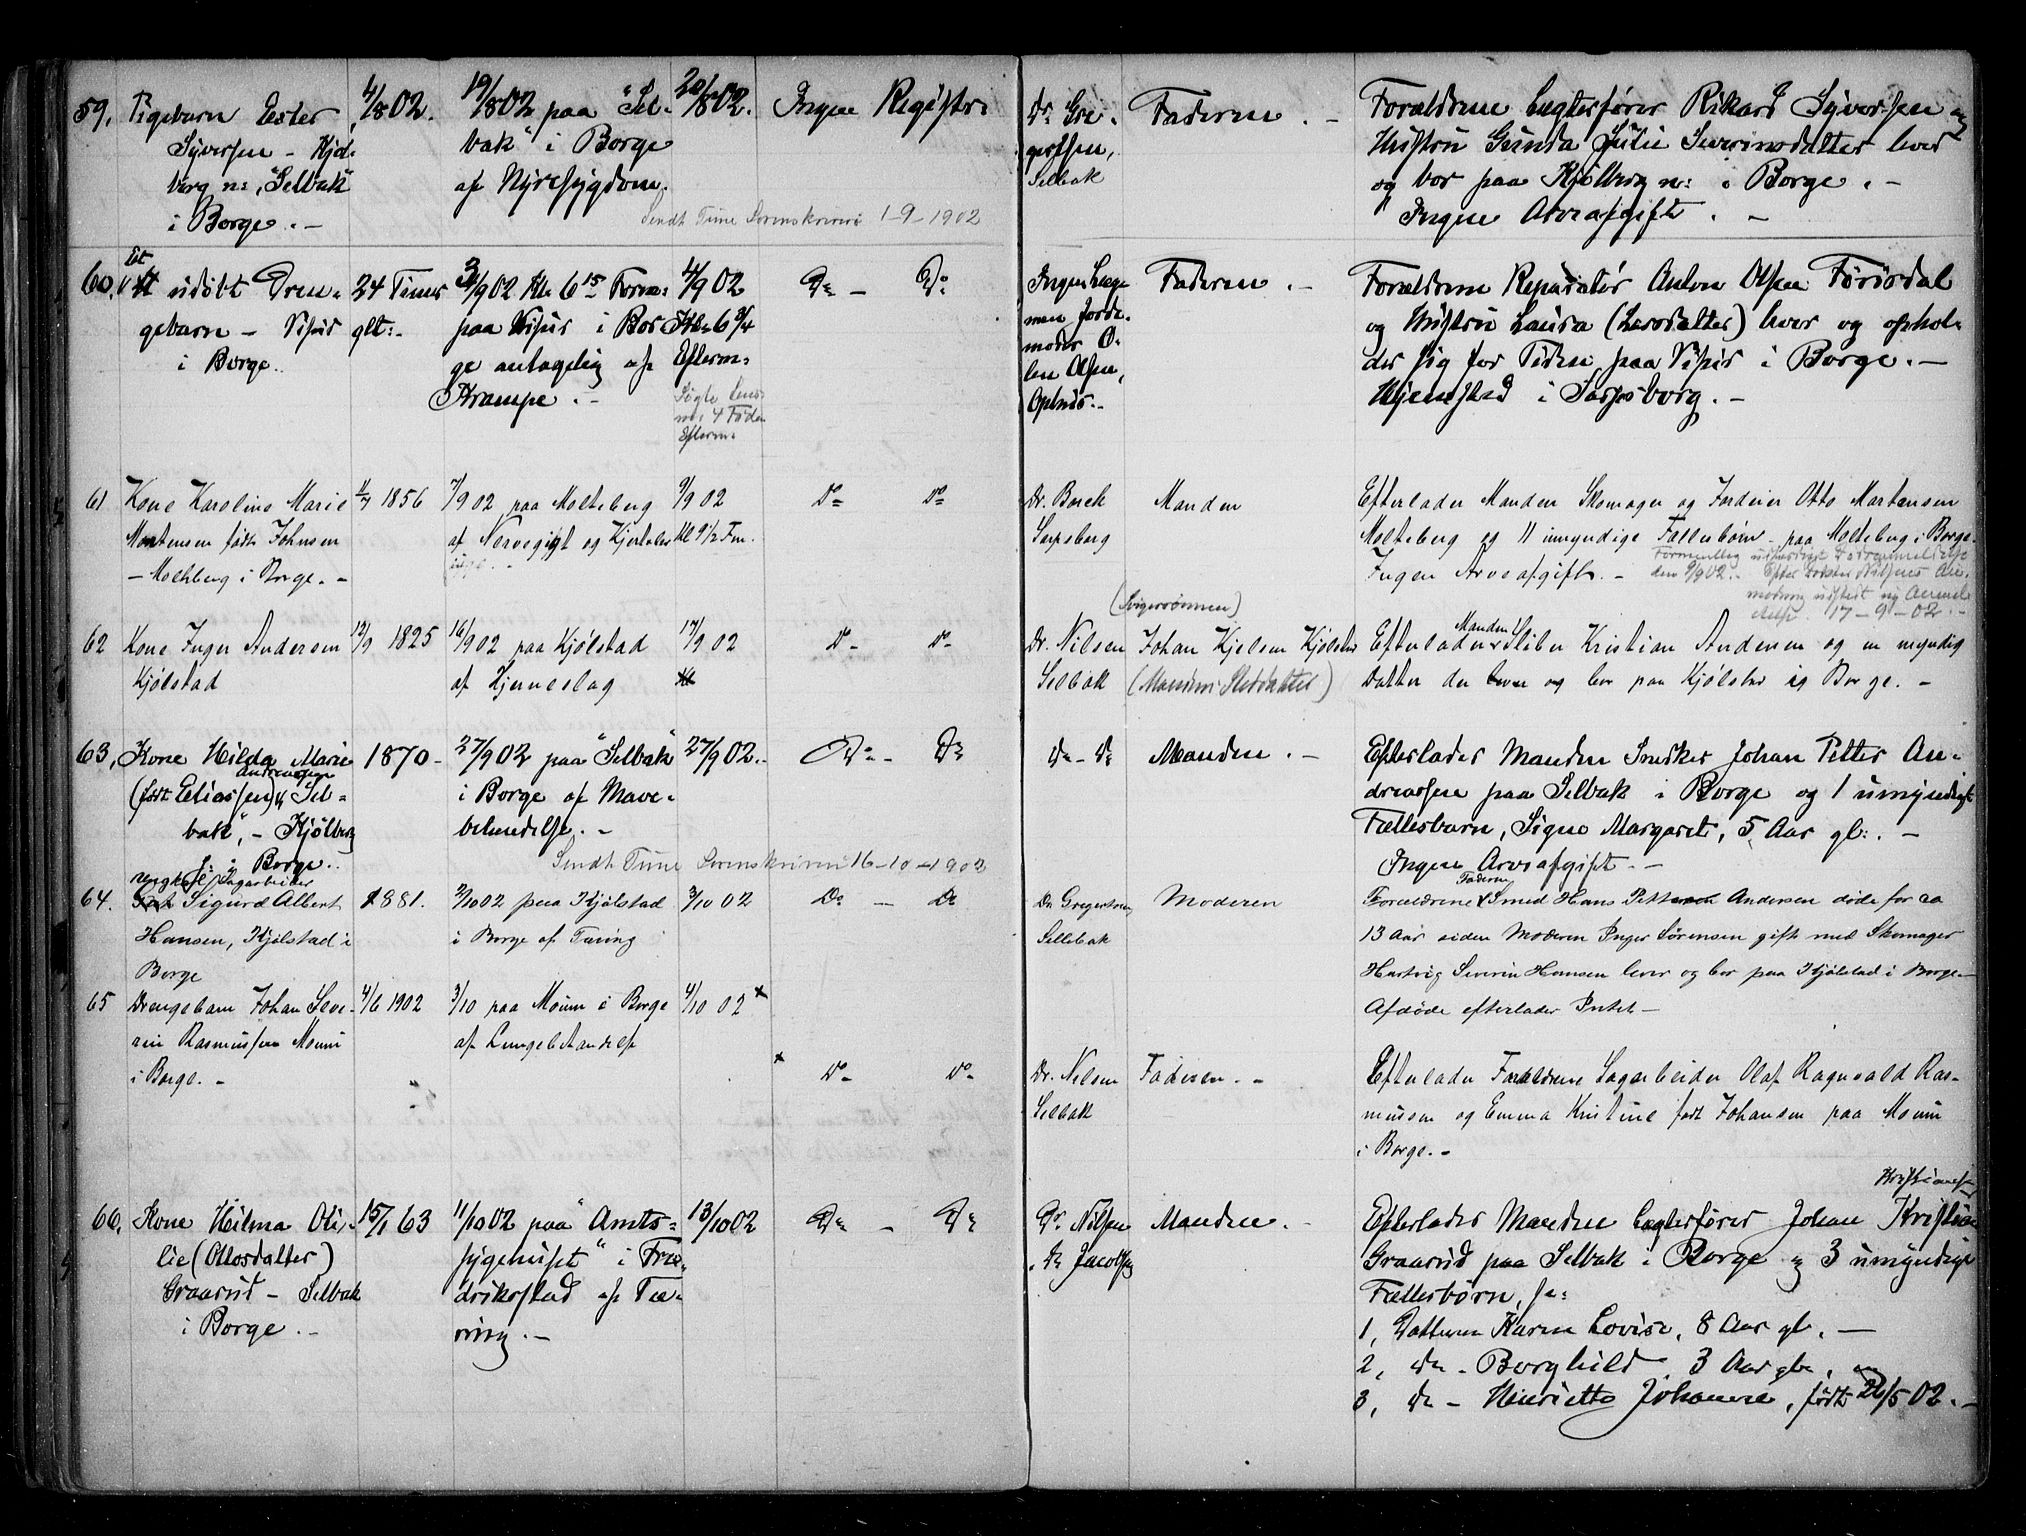 59, Pigebarn Ester
Syversen - Kjøl-
berg n:, "Selbak"
i Borge. -
4/8 02.
19/8 02 paa "Sel-
bak" i Borge
af Nyresygdom.
20/8 02.
Ingen Registr:
Sendt Tune Sorenskriveri 1-9-1902
Dr Gre-
gersen,
Selbak
Faderen. -
Forældrene Lægterfører Rikard Syversen og
Hustru Gunda Julie Severinsdatter lever
og bor paa Kjølberg n: i Borge. -
Ingen Arveafgift. -
60, Et udøbt Dren-
gebarn - Visur
i Borge.
24 Timer
glt:-
3/9 02 Kl. 6 15 Form:
paa Visur i Bor-
ge antagelig af
Krampe. -
4/9 02
Kl. 6 3/4
Efterm:
Efterm.
Do - Do
Ingen Læge
men Jorde-
moder O-
lea Olsen,
Faderen. -
Forældrene Reparatør Anton Olsen Torsdal
og Hustru Laura (Larsdatter) lever og ophol-
der sig for Tiden paa Visur i Borge. -
Hjemsted i Sarpsborg. -
61 Kone Karoline Marie
Martensen født Johnsen
- Molteberg i Borge. -
11/7 1856
7/9 02 paa Molteberg
af Nervegigt og Hjertelam-
9/9 02
Kl 9 1/2 Fm.
Do Do
Dr. Borch
Sarpsborg
Manden
Efterlader Manden Skomager og Gaardeier Otto Martensen
Molteberg og 11 umyndige Fællesbørn - paa Molteberg i Borge.
Ingen Arveafgift. -
den 9/9 02. -
17-9-02. -
62 Kone Inger Andersen
Kjølstad
12/9 1825
16/9 02 paa Kjølstad
af Hjerneslag
17/9 02
Do - Do
Dr. Nilsen
Selbak
(Svigersønnen)
Johan Kjelsen Kjølstad
(Mandens Steddatter)
Efterlader Manden Sliber Kristian Andersen og en myndig
Datter der lever og bor paa Kjølstad i Borge. -
63, Kone Hilda Marie
Andreassen
(født Eliassen), "Sel-
bak", - Kjølberg
n: i Borge.
1870 -
27/9 02 paa "Selbak"
i Borge af Mave-
betændelse. -
27/9 02. -
Do - Do
Sendt Tune Sorenskriveri 16-10-1902
Do - Do
Manden. -
Efterlader Manden Snedker Johan Petter An-
dreassen paa Selbak i Borge og 1 umyndigt
Fællesbarn, Signe Margarete, 5 Aar gl:. -
Ingen Arveafgift. -
64. Ungkarl Sagarbeider
Sigurd Albert
Hansen, Kjølstad i
Borge
1881.
2/10 02 paa Kjølstad
i Borge af Tæring
3/10 02
Do - Do
Dr Gregersen
Sellebak
Moderen
Forældrene Faderen Smed Hans Petter Andersen døde for ca
13 Aar siden Moderen Inger Sørensen gift med Skomager
Hartvig Severin Hansen lever og bor paa Kjølstad i Borge -
Afdøde efterlader Intet -
65 Drengebarn Johan Seve-
rin Rasmussen Moum
i Borge. -
4/6 1902
3/10 paa Moum i Borge
af Lungebetændelse
4/10 02 x
x Do - Do
Dr. Nilsen
Selbak
Faderen. -
Efterlader Forældrene Sagarbeider Olaf Ragnvald Ras-
mussen og Emma Kristine født Johansen paa Moum
i Borge. -
66, Kone Hilma Oti-
lie (Ottosdatter)
Graarud - Selbak
i Borge. -
15/1 63
11/10 02 paa "Amts-
sygehuset" i Fre-
drikstad af Tæ-
ring. -
13/10 02
Do - Do
Dr. Nilsen
Dr Jacobsen
Manden. -
Kristiansen
Efterlader Manden Lægterfører Johan Kristian
Graarud paa Selbak i Borge og 3 umyndige
Fællesbørn, s:
1, Datteren Karen Lovise, 8 Aar gl. -
2, Do - Borghild, 3 Aar gl. og
3, Do - Henriette Johanne, født 26/5 02. -